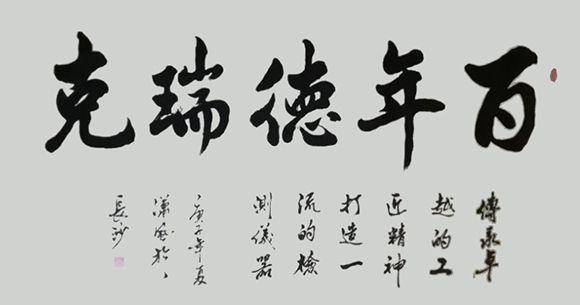 百年德瑞克
傳承卓
越的工
匠精神
打造一
流的檢
測儀器
庚子年夏
長沙